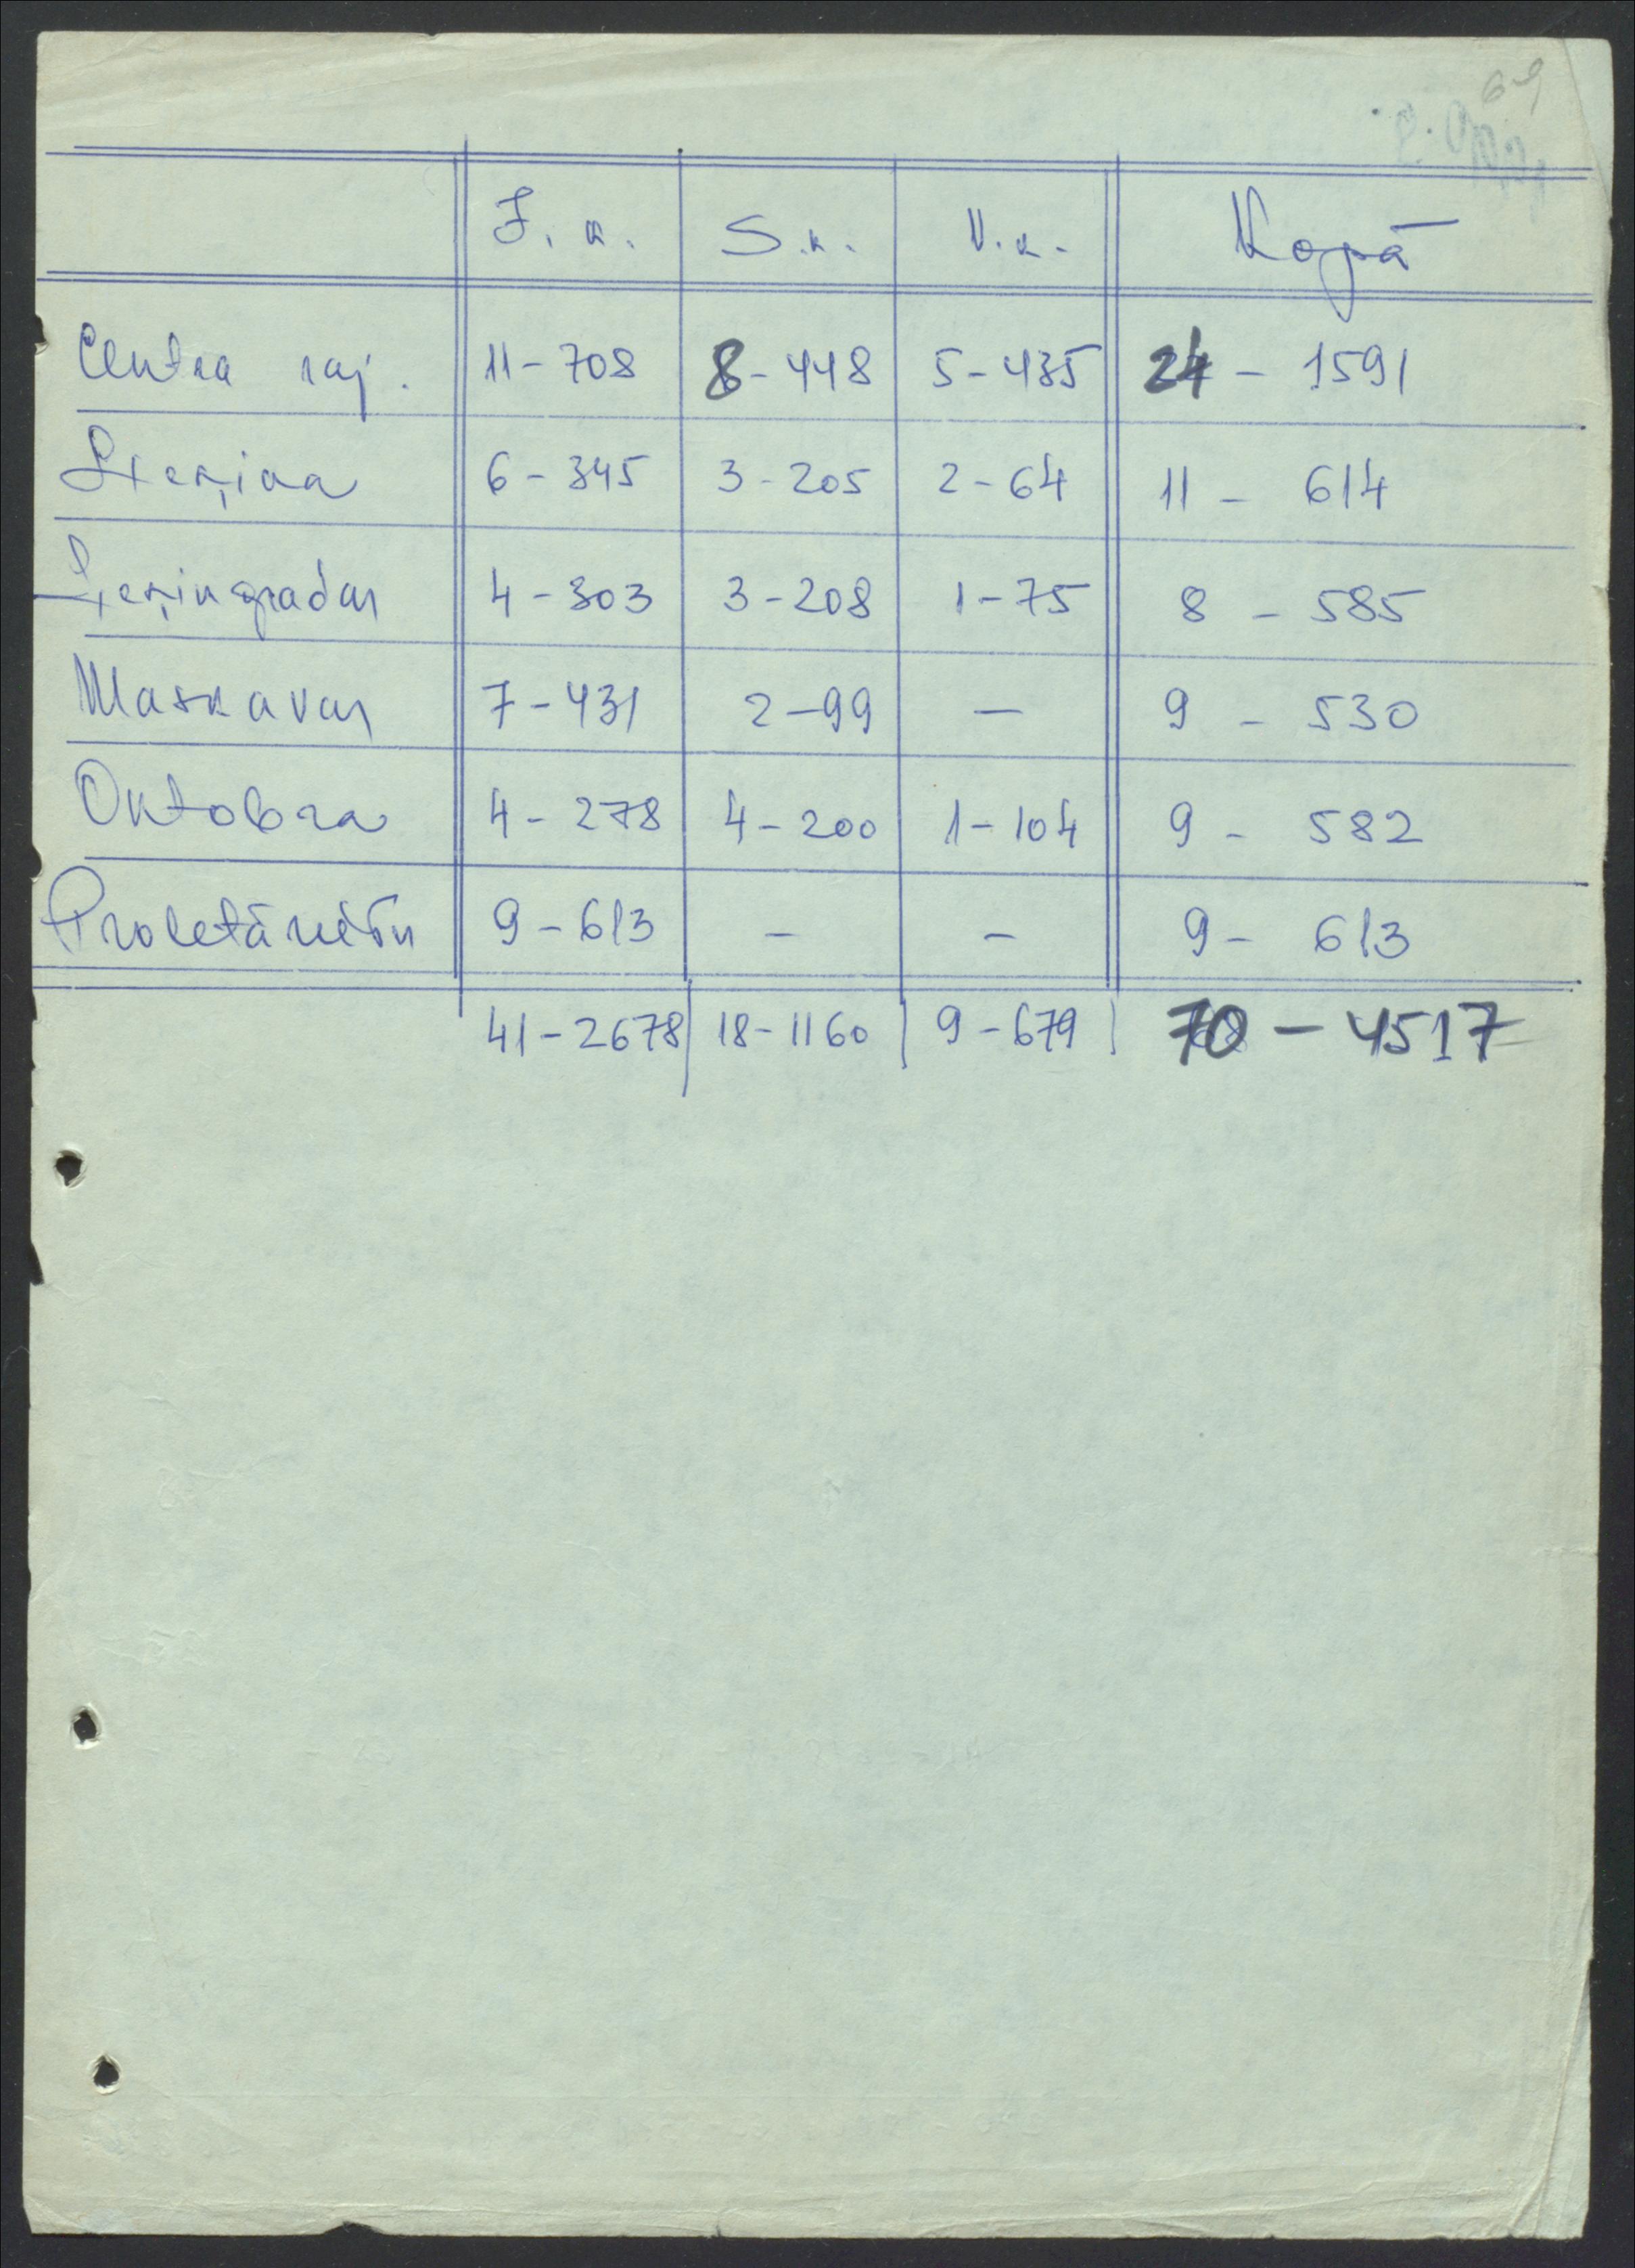 69
J. k. S. k. V. k. Kopā
Centra raj. 11 - 708 8 - 448 5 - 435 24 - 1591
Ļeņina 6 - 345 3 - 205 2 - 64 11 - 614
Ļeņingradas 4 - 303 3 - 208 1 - 75 8 - 585
Maskavas 7 - 431 2 - 99 — 9 - 530
Oktobra 4 - 278 4 - 200 1 - 104 9 - 582
Proletāriešu 9 - 613 - - 9 - 613
41 - 2678 18 - 1160 9 - 679 70 - 4517